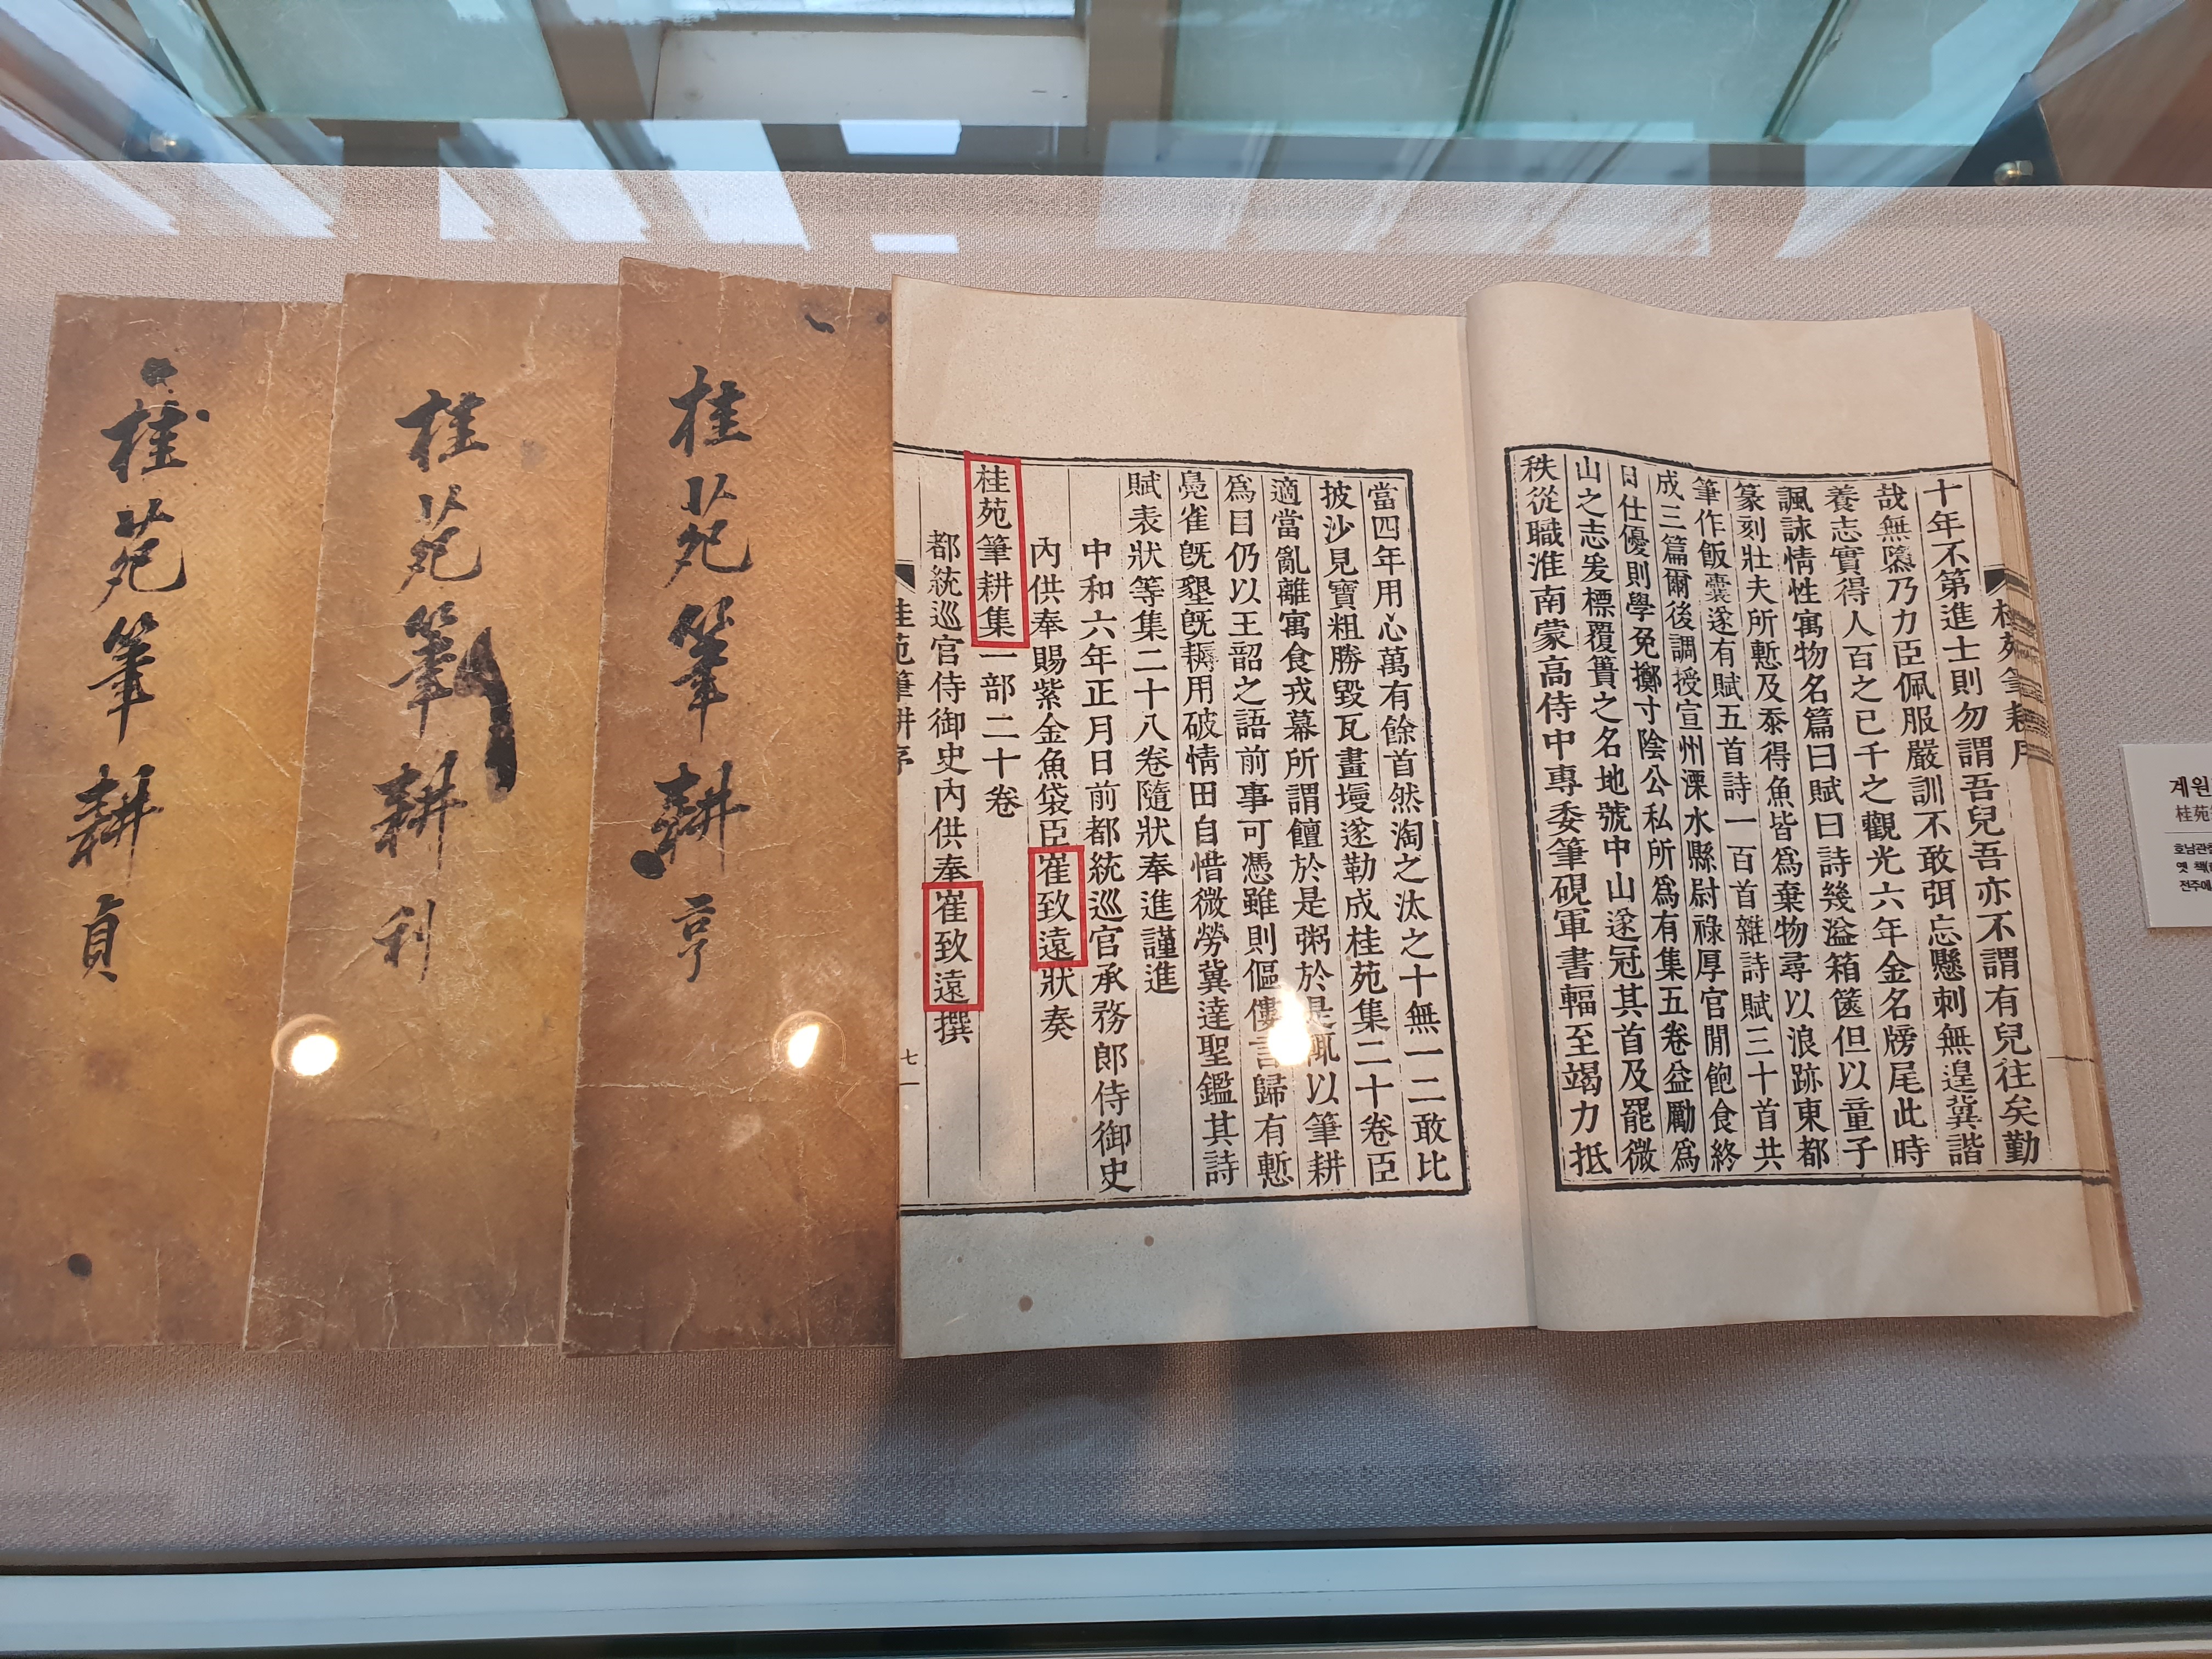 桂苑筆耕序
十年不第進士則勿謂吾兒吾亦不謂有兒往矣勤
哉無隳乃力臣佩服嚴訓不敢弭忘懸刺無遑冀諧
養志實得人百之已千之觀光六年金名牓尾此時
諷詠情性寓物名篇曰賦曰詩幾溢箱篋但以童子
篆刻壯夫所慙及忝得魚皆爲棄物尋以浪跡東都
筆作飯囊遂有賦五首詩一百首雜詩賦三十首共
成三篇爾後調授宣州溧水縣尉祿厚官閒飽食終
日仕優則學免擲寸陰公私所爲有集五卷益勵爲
山之志爰標覆簣之名地號中山遂冠其首及罷微
秩從職淮南蒙高侍中專委筆硯軍書輻至竭力抵
當四年用心萬有餘首然淘之汰之十無一二敢比
披沙見寶粗勝毀瓦畫墁遂勒成桂苑集二十卷臣
適當亂離寓食戎幕所謂饘於是粥於是輒以筆耕
爲目仍以王韶之語前事可憑雖則傴僂言歸有慙
鳧雀旣墾旣耨用破情田自惜微勞冀達聖鑑其詩
賦表狀等集二十八卷隨狀奉進謹進
中和六年正月日前都統巡官承務郎侍御史
內供奉賜紫金魚袋臣崔致遠狀奏
桂苑筆耕集一部二十卷
都統巡官侍御史內供奉崔致遠撰
桂苑筆耕序
七
桂苑筆耕 亨
桂苑筆耕 利
桂苑筆耕 貞
계원
桂苑
호남관찰
옛 책
전주에